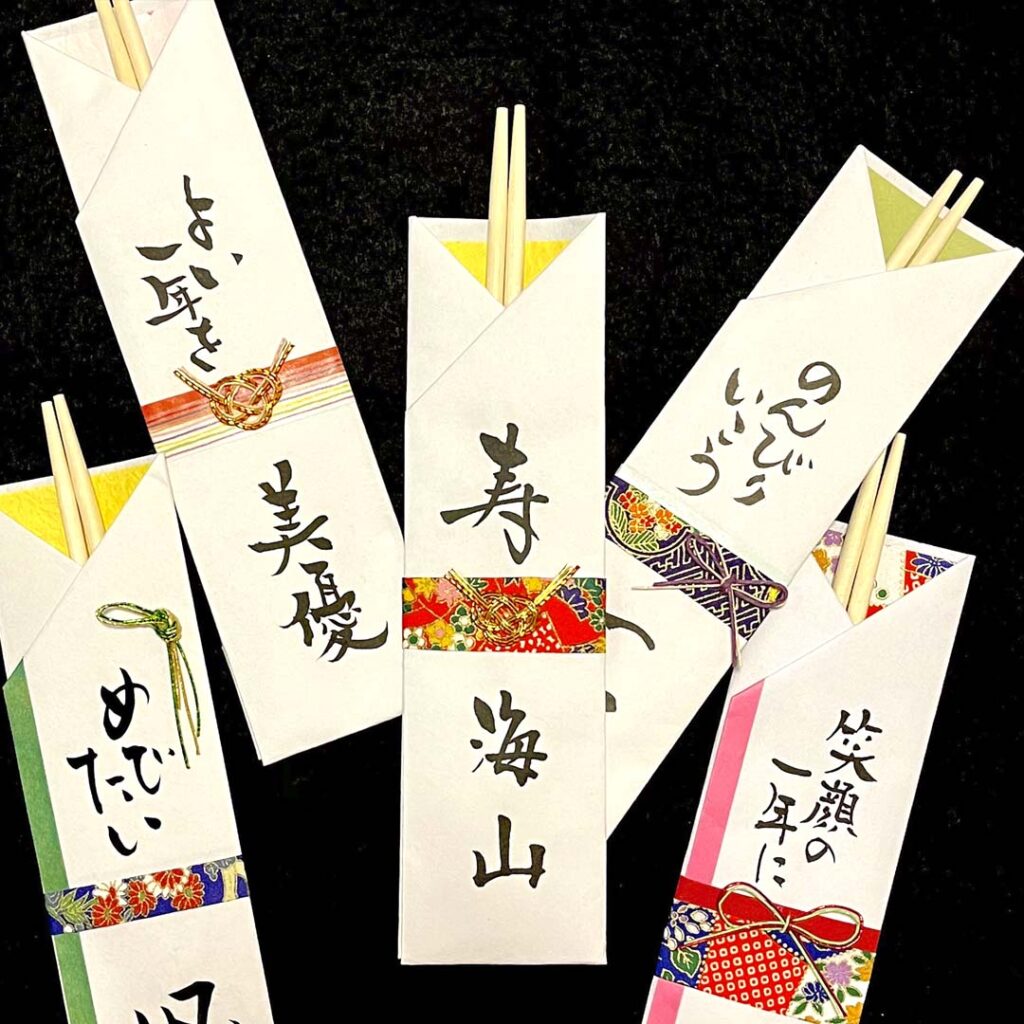 よい
一年を
美優
寿
海山
のんびり
いこう
めでたい
笑顔の
一年に